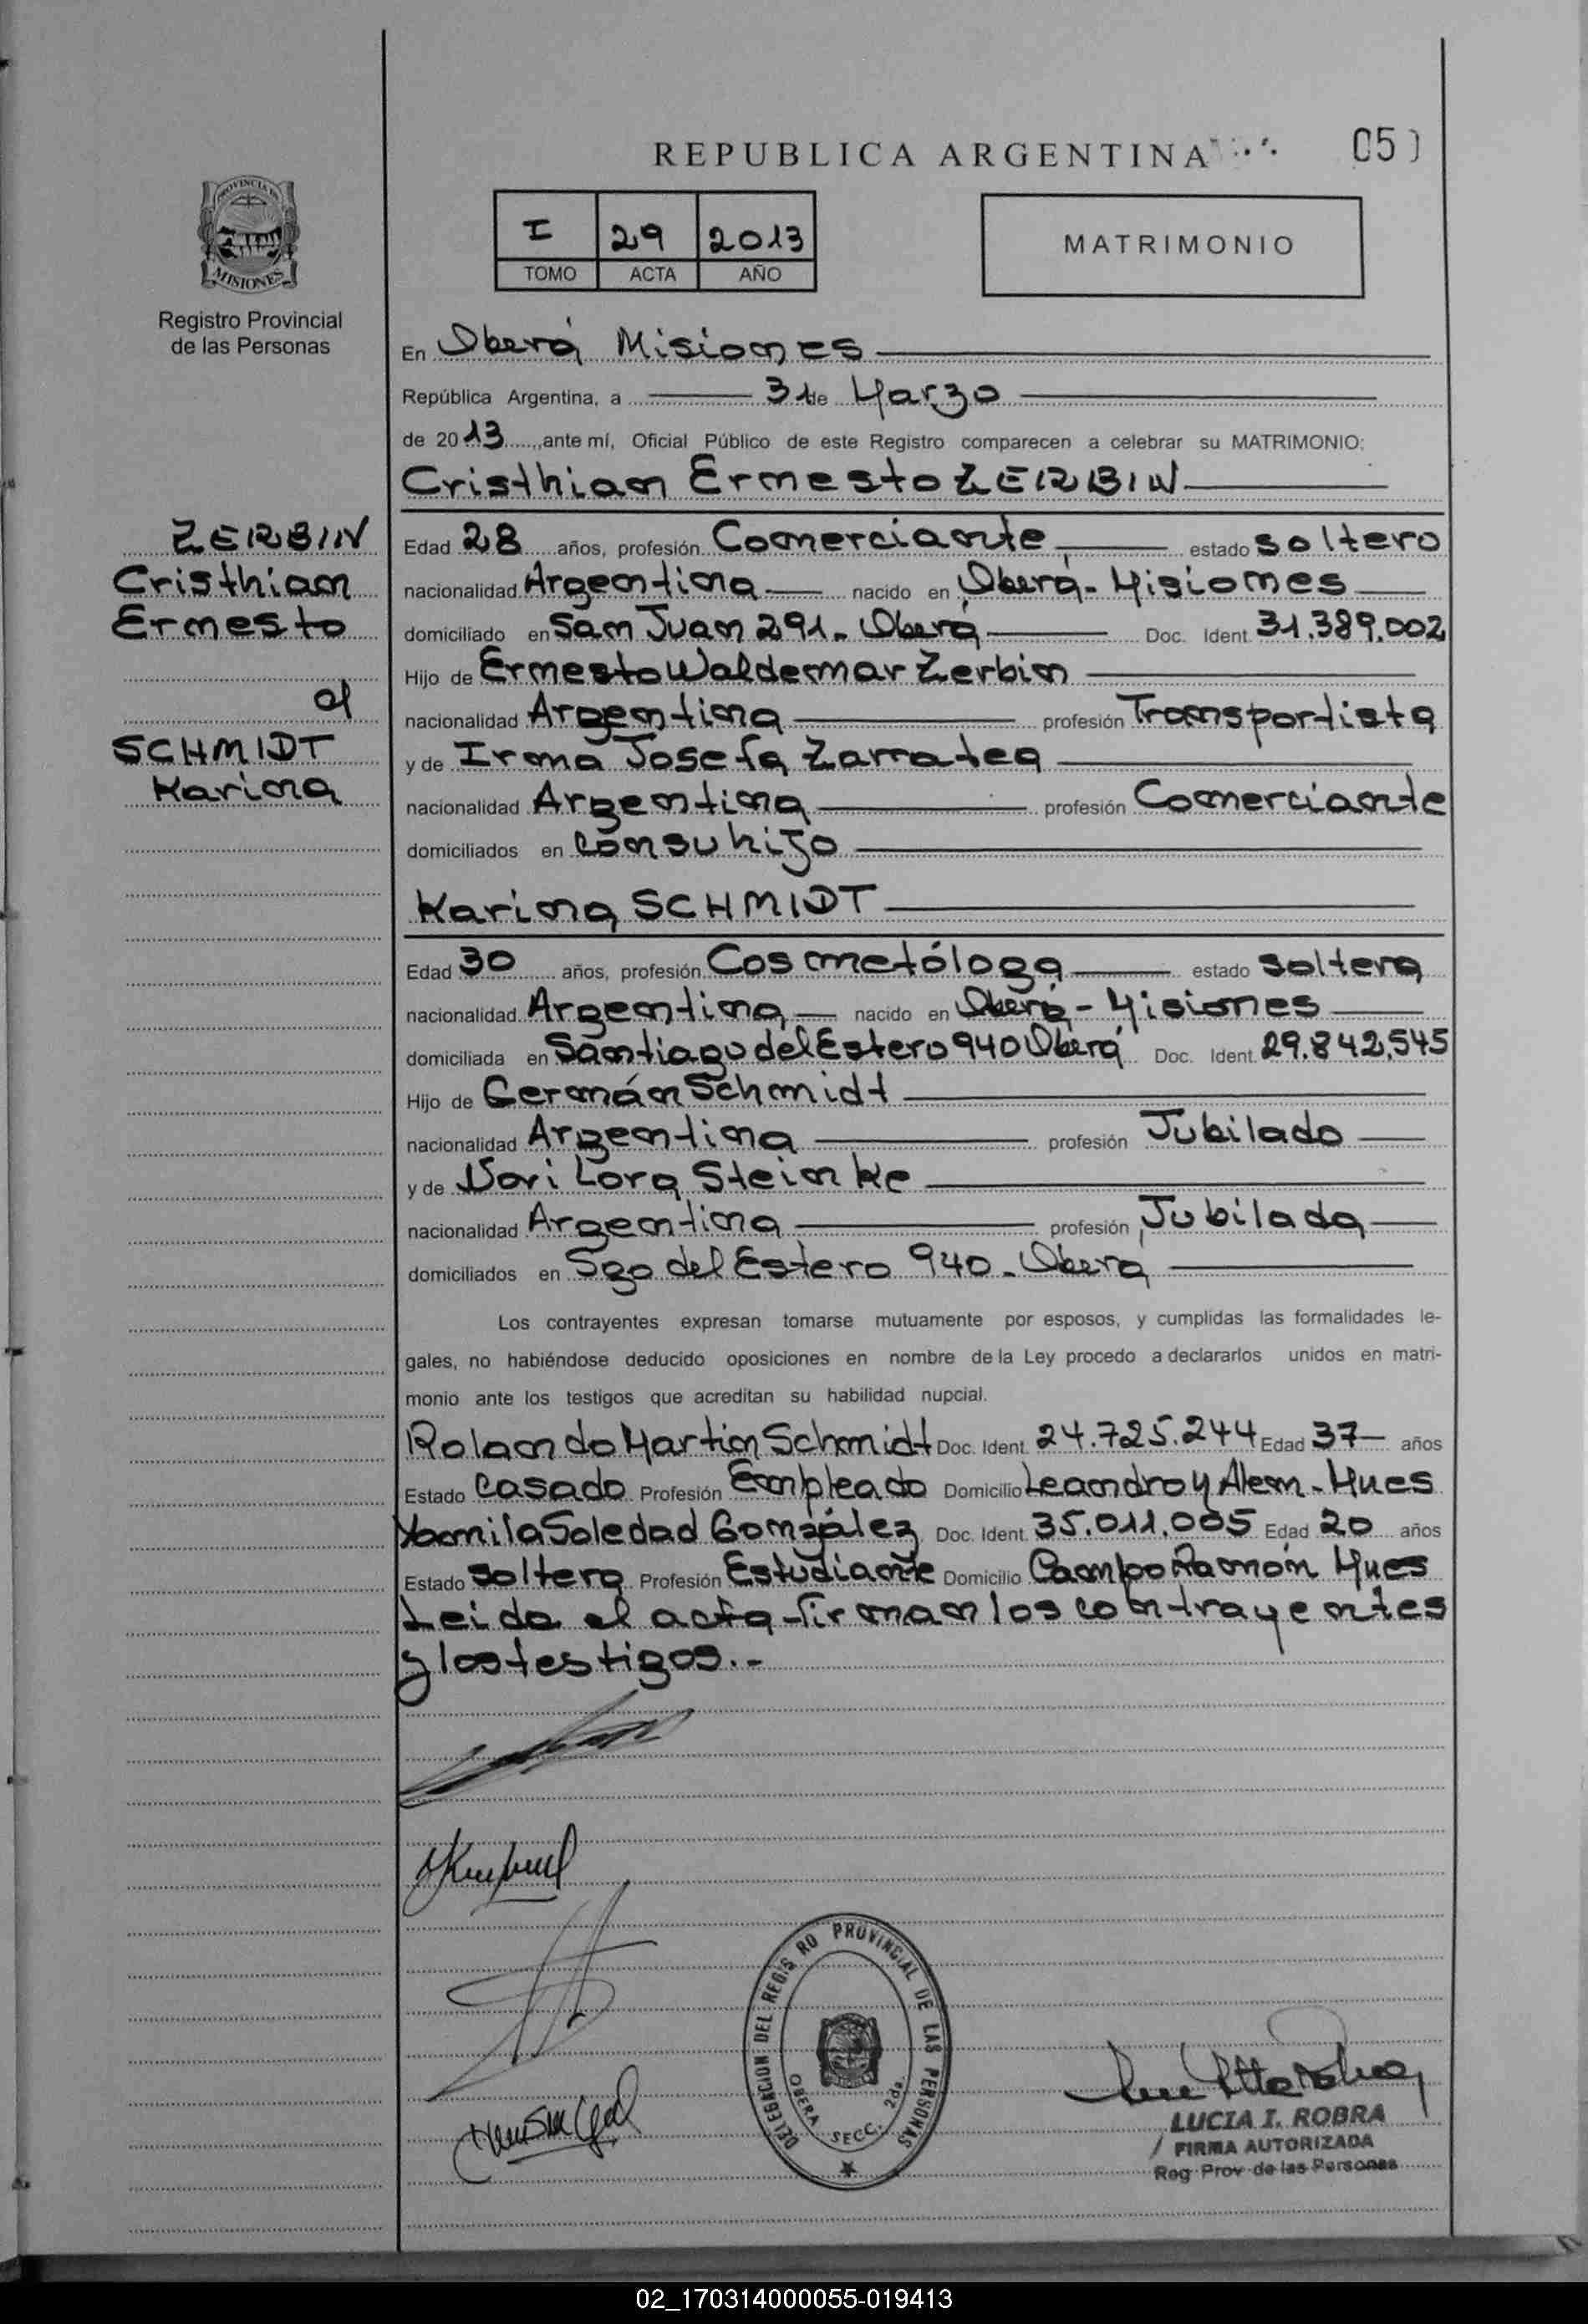 REPUBLICA ARGENTINA
051
PROVINCIA DE
MISIONES
Registro Provincial
de las Personas
I 29 2013
TOMO ACTA AÑO
MATRIMONIO
En Oberá Misiones
República Argentina, a 31 de Marzo
de 2013 ante mí, Oficial Público de este Registro comparecen a celebrar su MATRIMONIO:
Cristhian Ernesto ZERBIN
ZERBIN
Cristhian
Ernesto
c/
SCHMIDT
Karina
Edad 28 años, profesión Comerciante estado soltero
nacionalidad Argentina nacido en Oberá - Misiones
domiciliado en San Juan 291 - Oberá Doc. Ident. 31.389.002
Hijo de Ernesto Waldemar Zerbin
nacionalidad Argentina profesión Transportista
y de Irma Josefa Zarratea
nacionalidad Argentina profesión Comerciante
domiciliados en con su hijo
Karina SCHMIDT
Edad 30 años, profesión Cosmetóloga estado soltera
nacionalidad Argentina nacido en Oberá - Misiones
domiciliada en Santiago del Estero 940 Oberá Doc. Ident. 29.842.545
Hijo de Germán Schmidt
nacionalidad Argentina profesión Jubilado
y de Dori Lora Steinke
nacionalidad Argentina profesión Jubilada
domiciliados en Sgo del Estero 940 - Oberá
Los contrayentes expresan tomarse mutuamente por esposos, y cumplidas las formalidades le-
gales, no habiéndose deducido oposiciones en nombre de la Ley procedo a declararlos unidos en matri-
monio ante los testigos que acreditan su habilidad nupcial.
Rolando Martin Schmidt Doc. Ident. 24.725.244 Edad 37 años
Estado Casado Profesión Empleado Domicilio Leandro N Alem - Mnes
Yamila Soledad González Doc. Ident. 35.011.005 Edad 20 años
Estado Soltera Profesión Estudiante Domicilio Campo Ramón Mnes
Leida el acta firman los contrayentes
y los testigos.-
DELEGACION DEL REGIS RO PROVINCIAL DE LAS PERSONAS
OBERA SECC. 2da.
LUCIA I. ROBRA
FIRMA AUTORIZADA
Reg Prov de las Personas
02_170314000055-019413